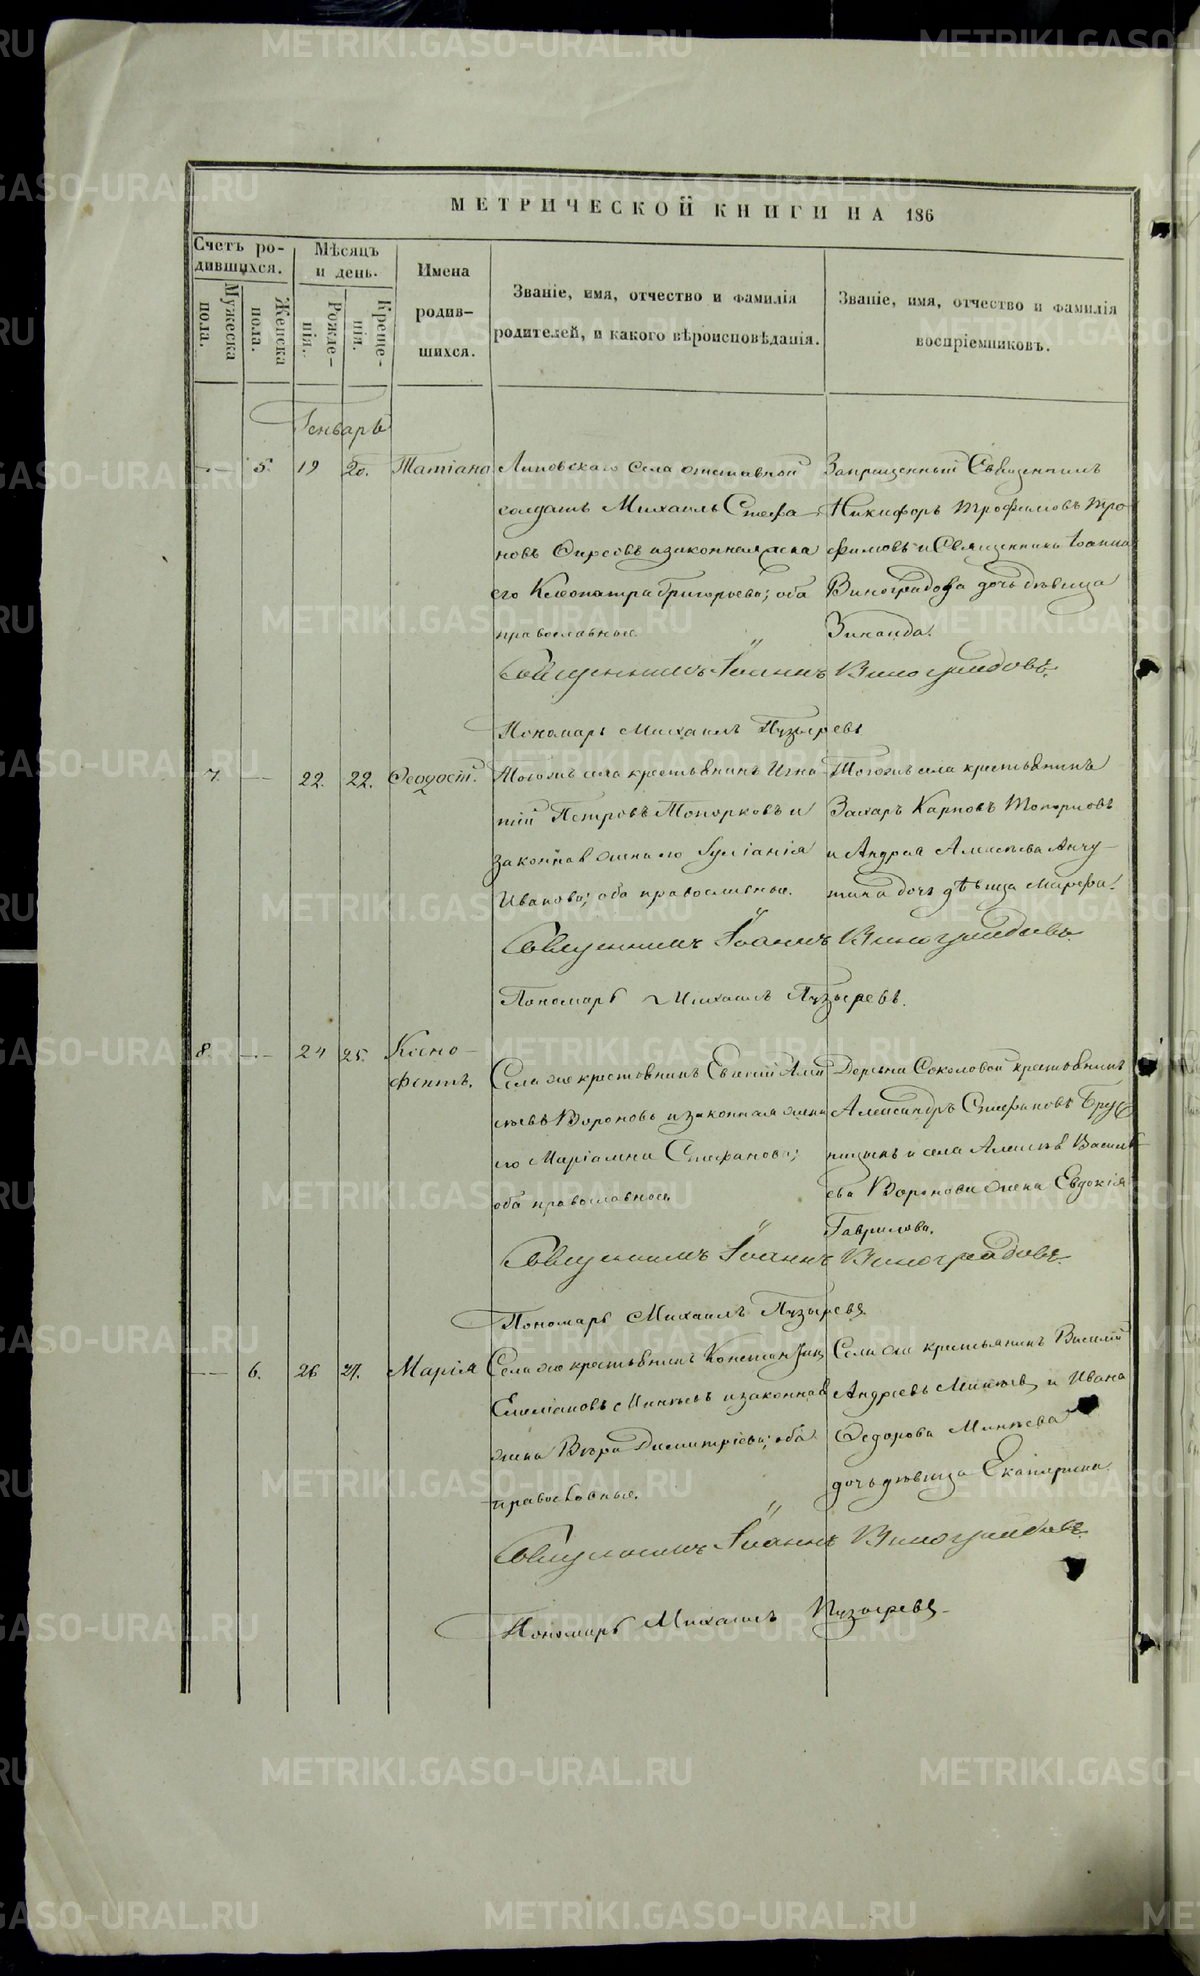 МЕТРИЧЕСКОЙ КНИГИ НА 186
Счетъ ро-
дившихся.
Мужеска
пола.
Женска
пола.
Мѣсяцъ
и день.
Рожде-
нія.
Креще-
нія.
Имена
родив-
шихся.
Званіе, имя, отчество и фамилія
родителей, и какого вѣроисповѣданія.
Званіе, имя, отчество и фамилія
воспріемниковъ.
Генварь
5. 19 20. Татіана
Липовскаго села отставной
солдатъ Михаилъ Стефа-
новъ и законная жена
его Клеопатра Григорьева; оба
православные.
Запрещенный Священникъ
Никифоръ Трофимовъ Тро-
фимовъ и Священника Іоанна
Виноградова дочь дѣвица
Зинаида.
Священникъ Іоаннъ Виноградовъ.
Пономарь Михаилъ Пузыревъ
7. 22. 22. Ѳеодосій.
Тогожъ села крестьянинъ Игна-
тій Петровъ Топорковъ и
законная жена его Іуліанія
Иванова; оба православные.
Тогожъ села крестьянинъ
Захаръ Карповъ Топорковъ
и Андрея Алексѣева Анчу-
тина дочь дѣвица Марѳа.
Священникъ Іоаннъ Виноградовъ.
Пономарь Михаилъ Пузыревъ.
8. 24 25. Ксено-
фонтъ.
Села же крестьянинъ Евсевій Алек
сѣевъ Вороновъ и законная жена
его Маріамна Стефанова;
оба православные
Деревни Соколовой крестьянинъ
Александръ Стефановъ Брус
ницынъ и села Алексѣя Василь-
ева Воронова жена Евдокія
Гаврилова.
Священникъ Іоаннъ Виноградовъ.
Пономарь Михаилъ Пузыревъ
6. 26 27. Марія
Села же крестьянинъ Константинъ
Емеліановъ Минѣевъ и законная
жена Вѣра Димитріева; оба
православные.
Села же крестьянинъ Василій
Андреевъ Минѣевъ и Ивана
Ѳедорова Минѣева
дочь дѣвица Екатерина.
Священникъ Іоаннъ Виноградовъ.
Пономарь Михаилъ Пузыревъ
METRIKI.GASO-URAL.RU